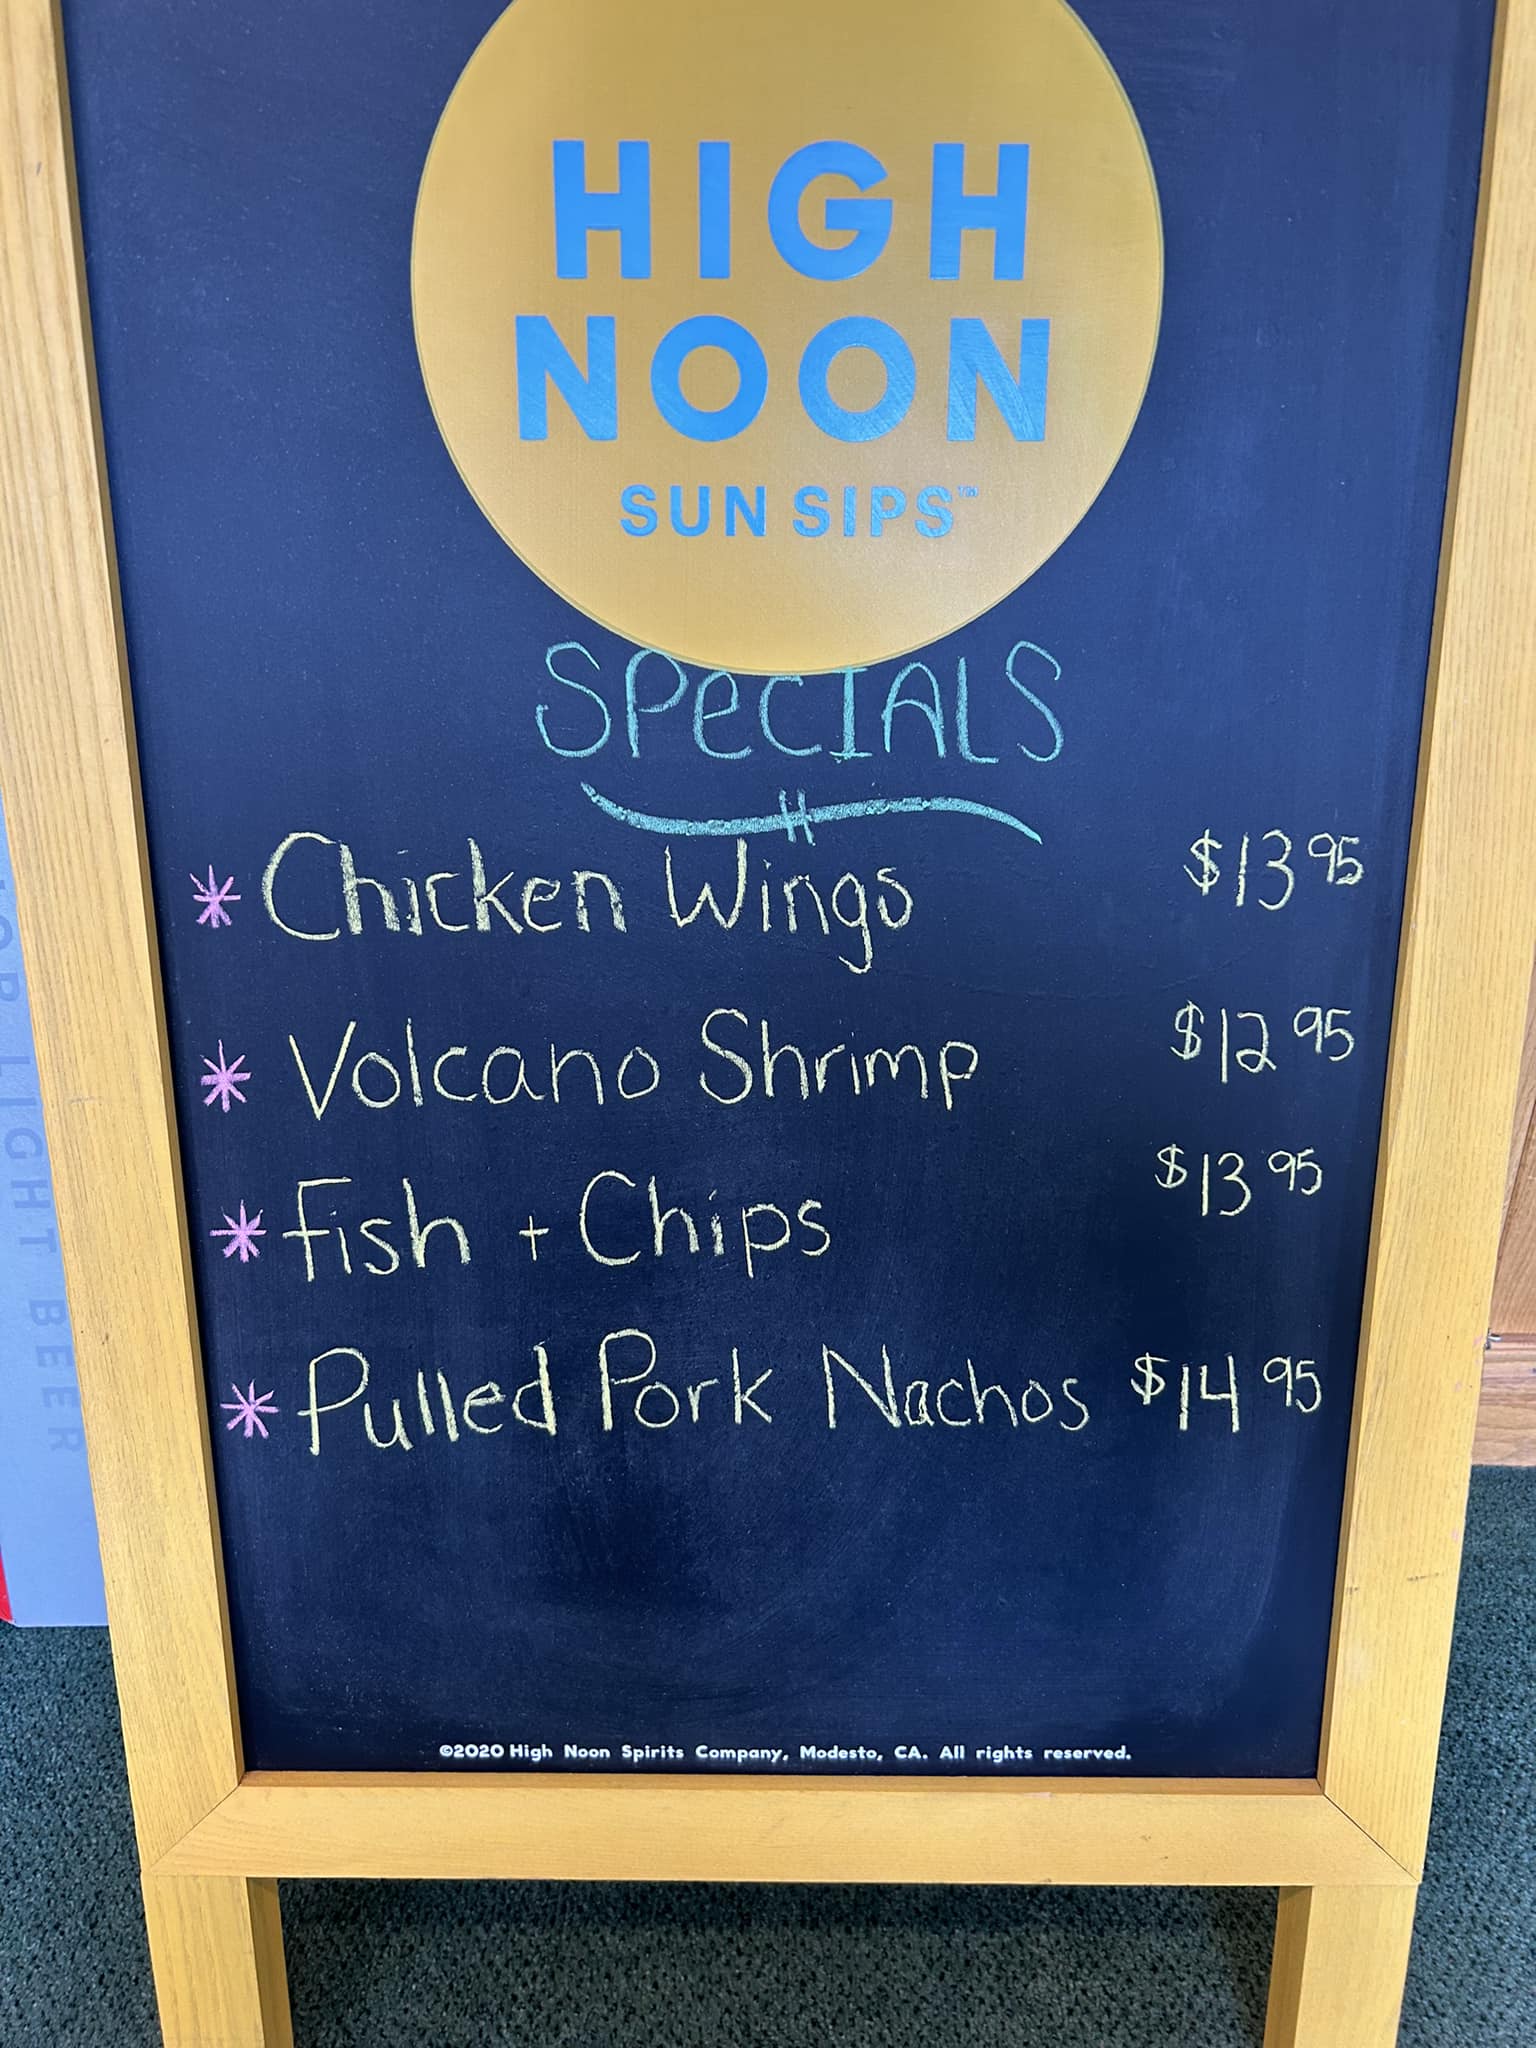 HIGH
NOON
SUN SIPS™
SPeCIALS
* Chicken Wings $13 95
* Volcano Shrimp $12 95
* Fish + Chips $13 95
* Pulled Pork Nachos $14 95
©2020 High Noon Spirits Company, Modesto, CA. All rights reserved.
LIGHT BEER